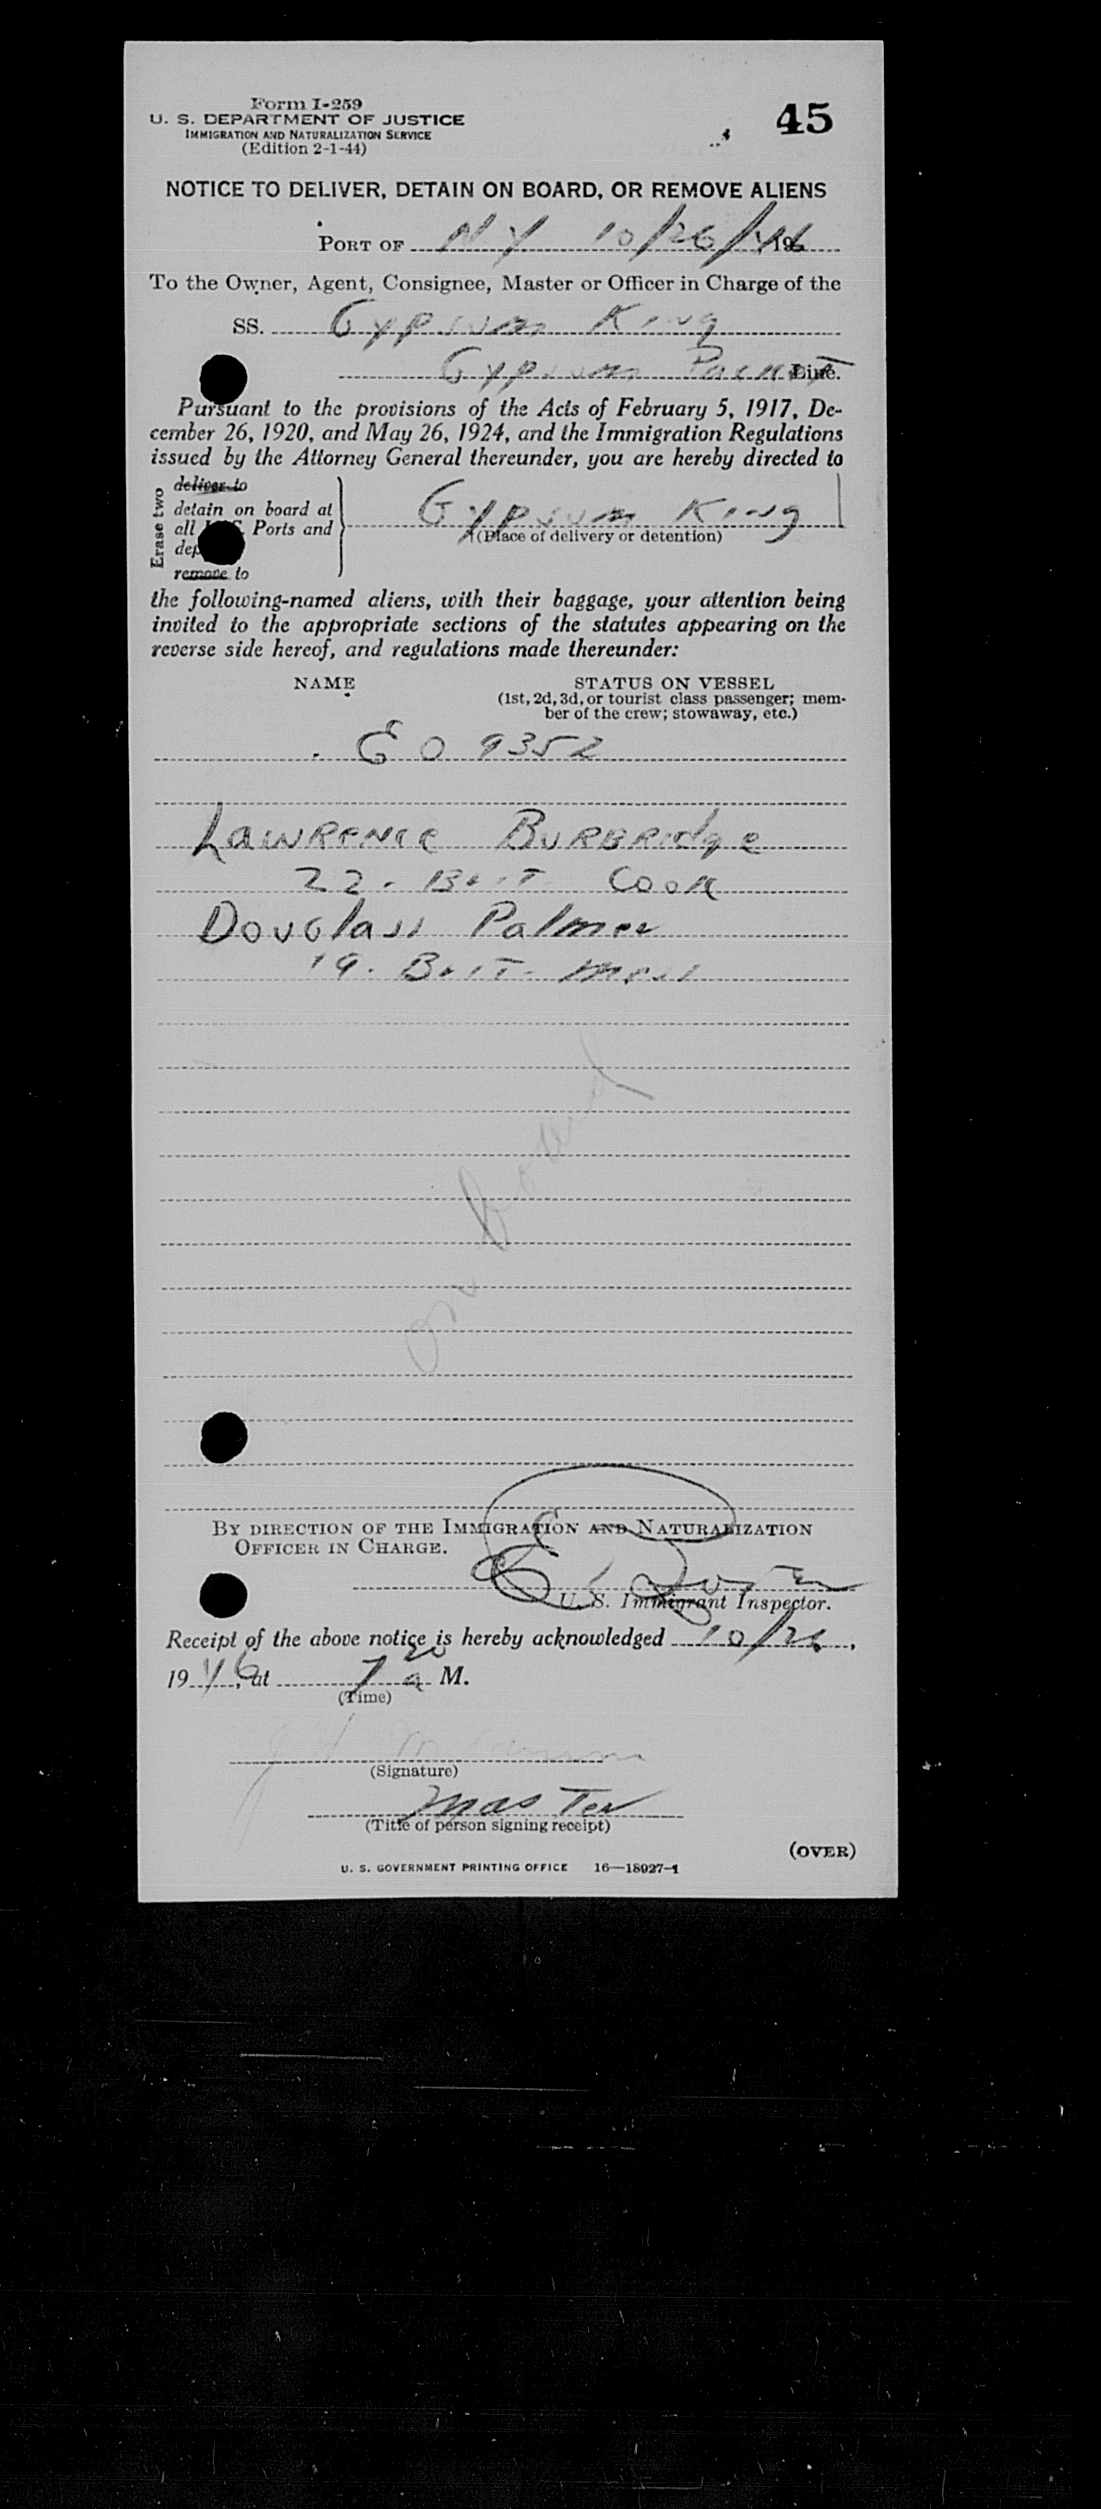 Form I-259
45
U. S. DEPARTMENT OF JUSTICE
IMMIGRATION AND NATURALIZATION SERVICE
(Edition 2-1-44)
NOTICE TO DELIVER, DETAIN ON BOARD, OR REMOVE ALIENS
PORT OF NY 10/26/46
To the Owner, Agent, Consignee, Master or Officer in Charge of the
SS. Gypsum King
Gypsum Packet Line.
Pursuant to the provisions of the Acts of February 5, 1917, De-
cember 26, 1920, and May 26, 1924, and the Immigration Regulations
issued by the Attorney General thereunder, you are hereby directed to
Erase two
deliver to
detain on board at
all Ports and
remove to
Gypsum King
(Place of delivery or detention)
the following-named aliens, with their baggage, your attention being
invited to the appropriate sections of the statutes appearing on the
reverse side hereof, and regulations made thereunder:
NAME
STATUS ON VESSEL
(1st, 2d, 3d, or tourist class passenger; mem-
ber of the crew; stowaway, etc.)
EO 9352
Lawrence Burbridge
22 - Brit - Cook
Douglass Palmer
19 - Brit - Mess
on board
BY DIRECTION OF THE IMMIGRATION AND NATURALIZATION
OFFICER IN CHARGE.
U. S. Immigrant Inspector.
Receipt of the above notice is hereby acknowledged 10/26,
1946, at 7 20 a M.
(Time)
(Signature)
Master
(Title of person signing receipt)
(OVER)
U. S. GOVERNMENT PRINTING OFFICE 16—18027-1